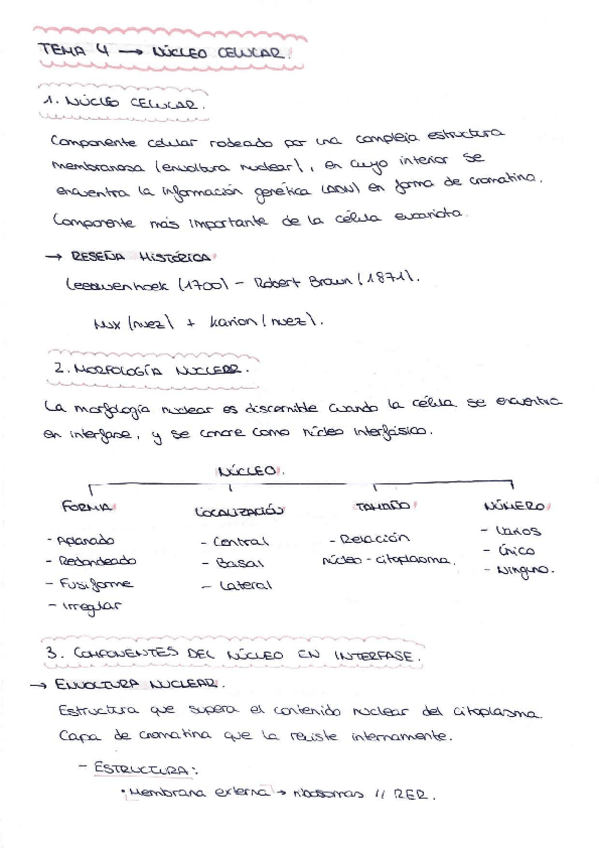 TEMA 4 → NÚCLEO CELULAR.
1. NÚCLEO CELULAR.
Componente celular rodeado por una compleja estructura
membranosa (envoltura nuclear), en cuyo interior se
encuentra la información genética (ADN) en forma de cromatina.
Componente más importante de la célula eucariota.
→ RESEÑA HISTÓRICA
Leeuwenhoek (1700) - Robert Brown (1871).
Nux (nuez) + karion (nuez).
2. MORFOLOGÍA NUCLEAR.
La morfología nuclear es discernible cuando la célula se encuentra
en interfase, y se conoce como núcleo interfásico.
NÚCLEO.
FORMA LOCALIZACIÓN TAMAÑO NÚMERO
- Aplanado - Central - Relación - Varios
- Redondeado - Basal núcleo-citoplasma. - Único
- Fusiforme - Lateral - Ninguno.
- Irregular
3. COMPONENTES DEL NÚCLEO EN INTERFASE.
→ ENVOLTURA NUCLEAR.
Estructura que supera el contenido nuclear del citoplasma.
Capa de cromatina que la reviste internamente.
- ESTRUCTURA:
• Membrana externa → ribosomas // RER.